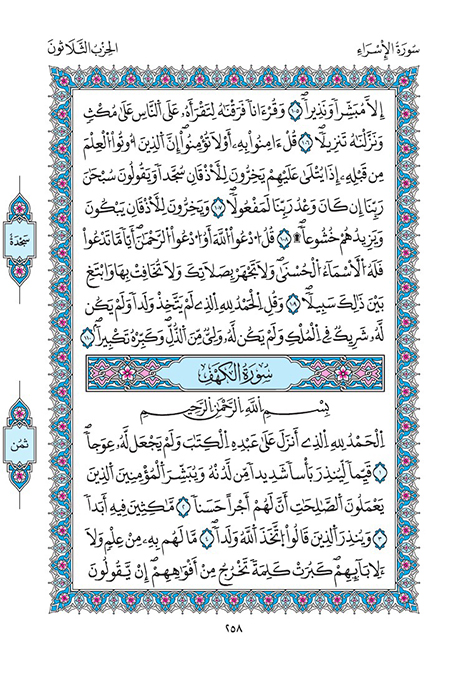 سُورَةُ الإِسْرَاءِ
الحِزْبُ الثَّلَاثُونَ
إِلَّا مُبَشِّراً وَنَذِيراً ١٠٥ وَقُرْءَاناً فَرَقْنَٰهُ لِتَقْرَأَهُۥ عَلَى اَلنَّاسِ عَلَىٰ مُكْثٖ
وَنَزَّلْنَٰهُ تَنزِيلاً ١٠٦ قُلَ اٰمِنُواْ بِهِۦٓ أَوْ لَا تُؤْمِنُوٓاْ إِنَّ اَلذِينَ أُوتُواْ اُلْعِلْمَ
مِن قَبْلِهِۦٓ إِذَا يُتْلَىٰ عَلَيْهِمْ يَخِرُّونَ لِلْأَذْقَانِ سُجَّداً وَيَقُولُونَ سُبْحَٰنَ
رَبِّنَآ إِن كَانَ وَعْدُ رَبِّنَا لَمَفْعُولاً ١٠٧ وَيَخِرُّونَ لِلْأَذْقَانِ يَبْكُونَ
وَيَزِيدُهُمْ خُشُوعاً ۩ ١٠٨ قُلُ اُدْعُواْ اُللَّهَ أَوُ اُدْعُواْ اُلرَّحْمَٰنَ أَيّاً مَّا تَدْعُواْ
فَلَهُ اُلْأَسْمَآءُ اُلْحُسْنَىٰ وَلَا تَجْهَرْ بِصَلَاتِكَ وَلَا تُخَافِتْ بِهَا وَابْتَغِ
بَيْنَ ذَٰلِكَ سَبِيلاً ١٠٩ وَقُلِ اِلْحَمْدُ لِلهِ اِلذِے لَمْ يَتَّخِذْ وَلَداً وَلَمْ يَكُن
لَّهُۥ شَرِيكٞ فِے اِلْمُلْكِ وَلَمْ يَكُن لَّهُۥ وَلِيّٞ مِّنَ اَلذُّلِّ وَكَبِّرْهُ تَكْبِيراً ١١٠
سُورَةُ الكَهْفِ
بِسْمِ اِللَّهِ اِلرَّحْمَٰنِ اِلرَّحِيمِ
اِلْحَمْدُ لِلهِ اِلذِےٓ أَنزَلَ عَلَىٰ عَبْدِهِ اِلْكِتَٰبَ وَلَمْ يَجْعَل لَّهُۥ عِوَجاً
١ قَيِّماً لِّيُنذِرَ بَأْساً شَدِيداً مِّن لَّدُنْهُ وَيُبَشِّرَ اَلْمُؤْمِنِينَ اَلذِينَ
يَعْمَلُونَ اَلصَّٰلِحَٰتِ أَنَّ لَهُمْ أَجْراً حَسَناً ٢ مَّٰكِثِينَ فِيهِ أَبَداً
٣ وَيُنذِرَ اَلذِينَ قَالُواْ اُتَّخَذَ اَللَّهُ وَلَداً ٤ مَّا لَهُم بِهِۦ مِنْ عِلْمٖ وَلَا
لِأٓبَآئِهِمْ كَبُرَتْ كَلِمَةٗ تَخْرُجُ مِنْ أَفْوَٰهِهِمُۥٓ إِنْ يَّقُولُونَ
سَجْدَةٌ
ثُمُن
٢٥٨